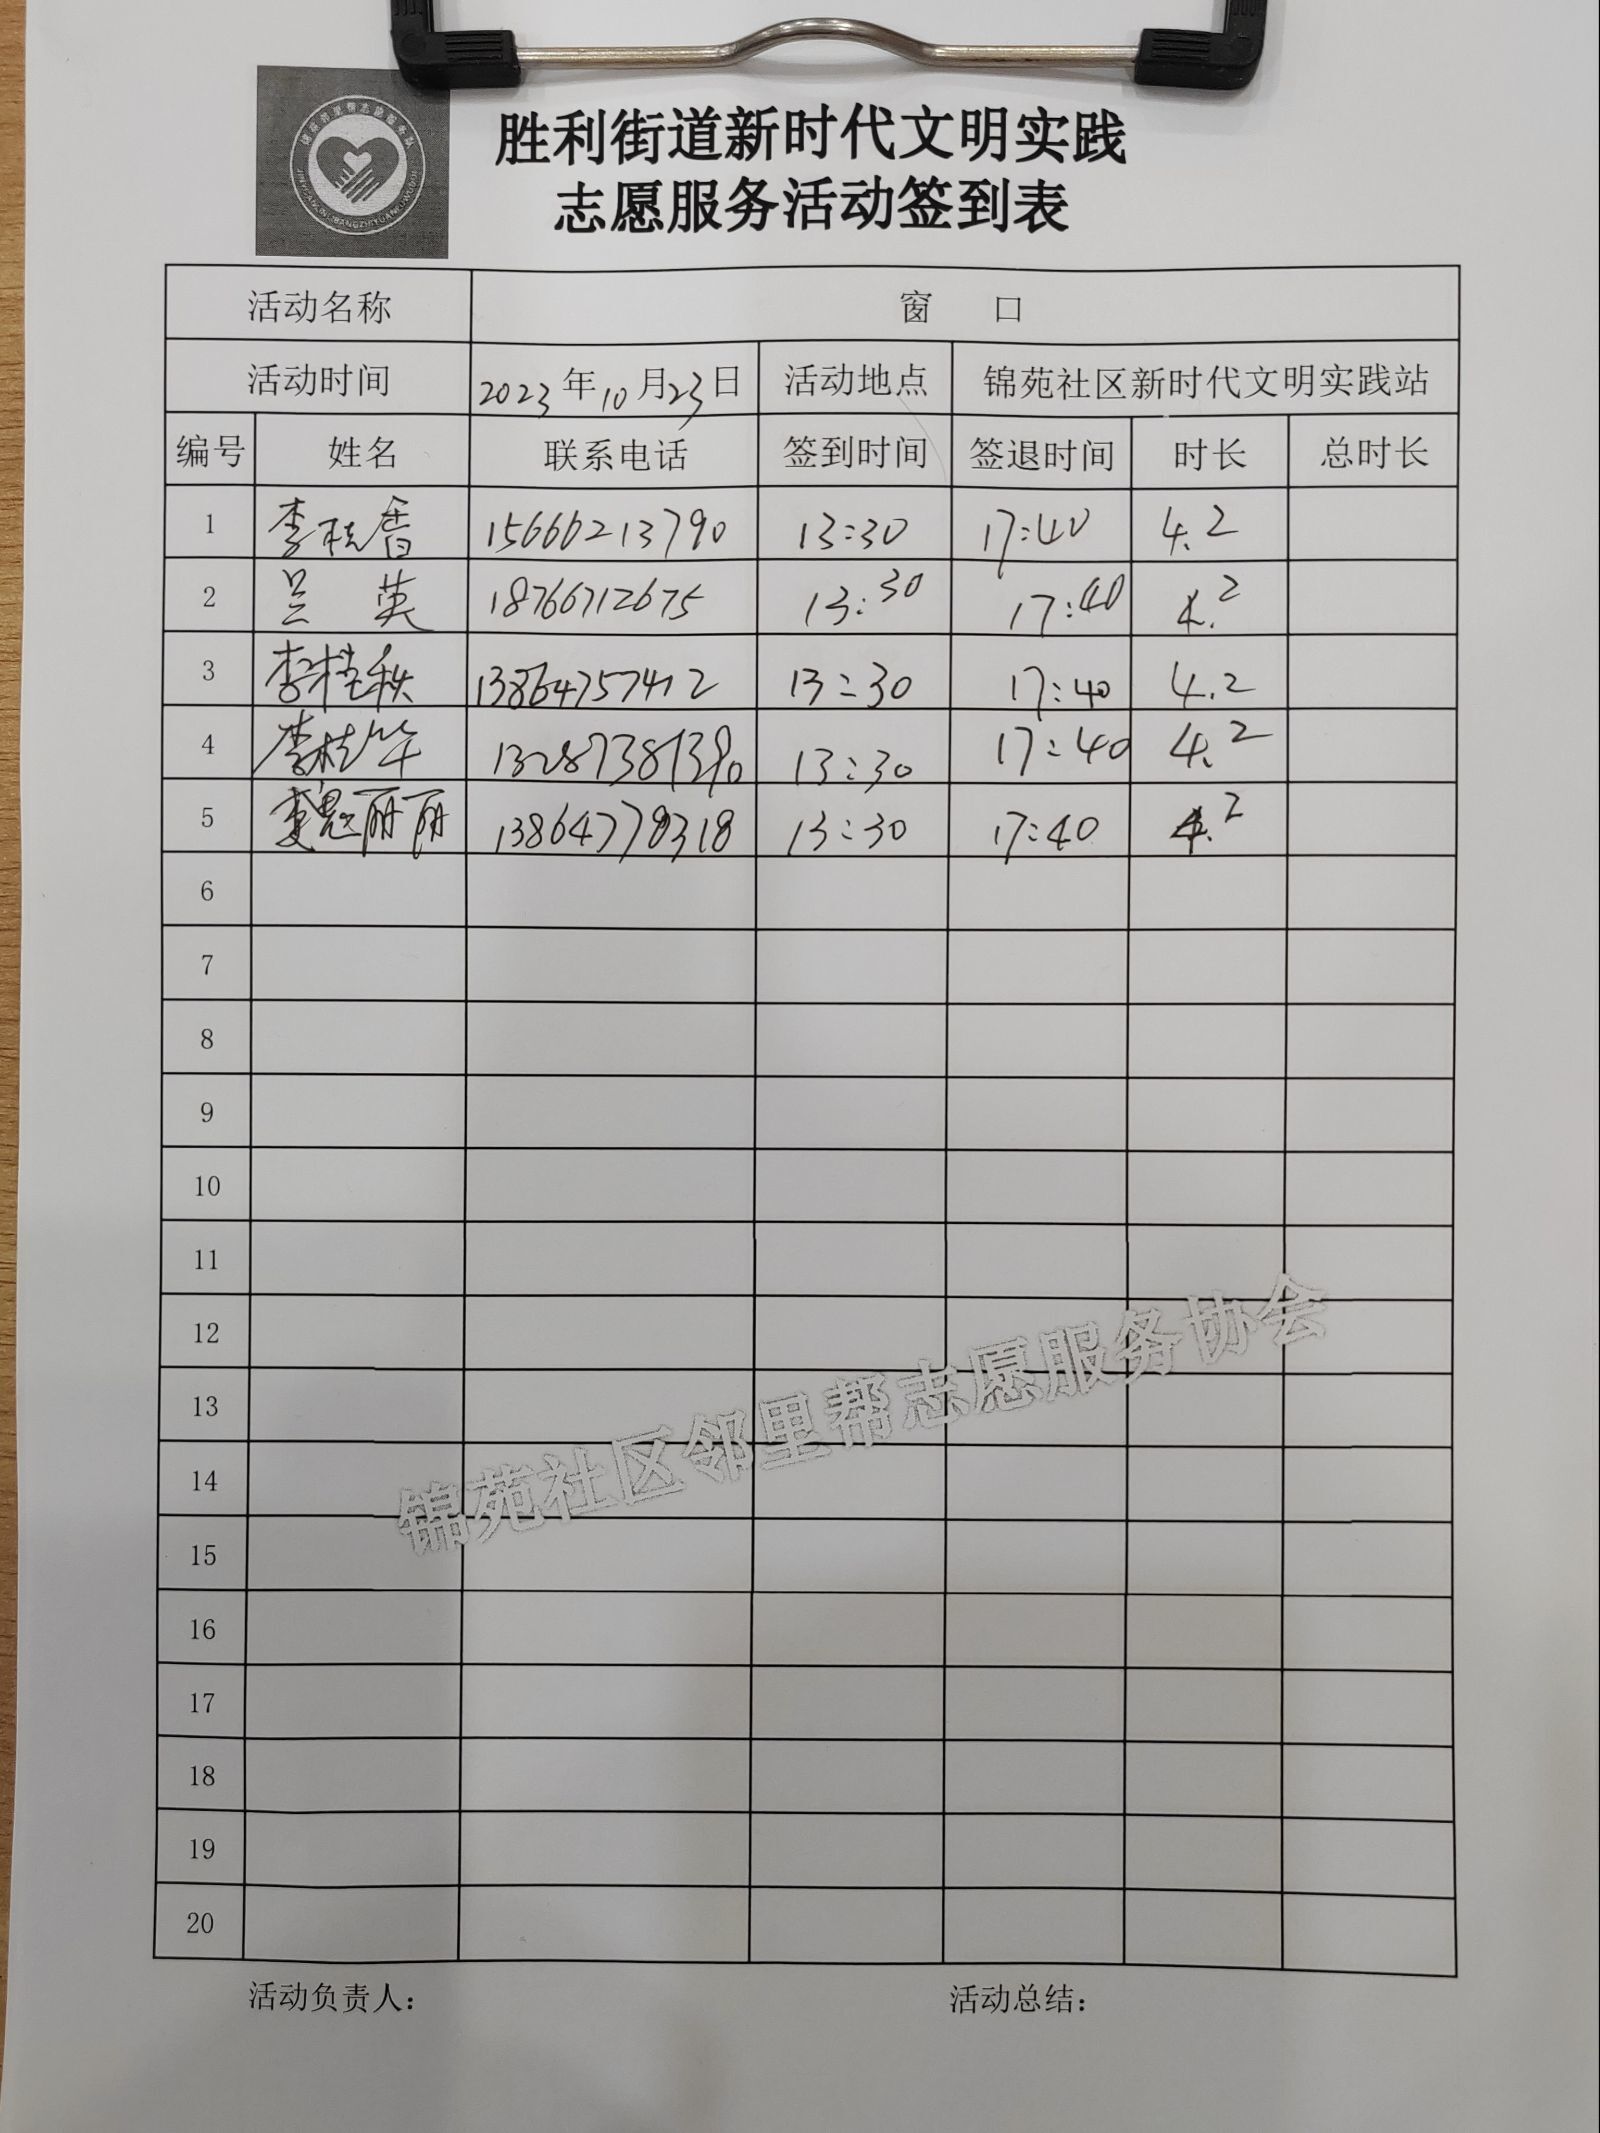 胜利街道新时代文明实践
志愿服务活动签到表
活动名称 窗 口
活动时间 2023年10月23日 活动地点 锦苑社区新时代文明实践站
编号 姓名 联系电话 签到时间 签退时间 时长 总时长
1 李桂香 15666213790 13:30 17:40 4.2
2 吴英 18766712675 13:30 17:40 4.2
3 李桂秩 13864757412 13:30 17:40 4.2
4 李桂华 13:30 17:40 4.2
5 魏丽丽 13864778318 13:30 17:40 4.2
6
7
8
9
10
11
12
13
14
15
16
17
18
19
20
锦苑社区邻里帮志愿服务协会
活动负责人： 活动总结：